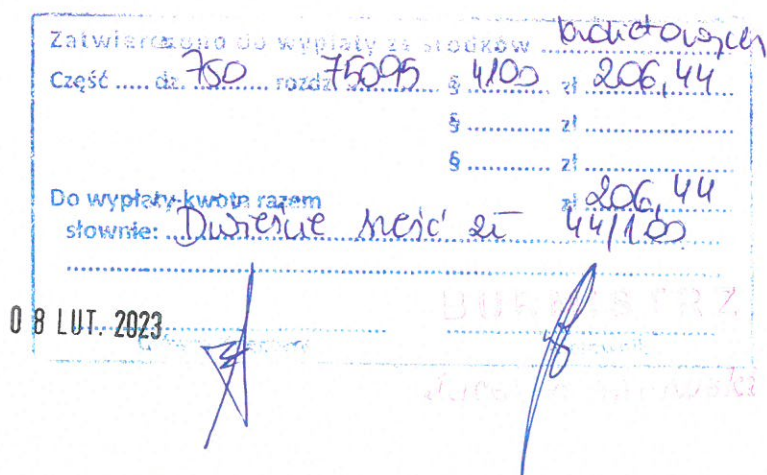 Zatwierdzono do wypłaty ze środków budżetowych
Część ..... dz. 750 rozdz. 75095 § 4100 zł 206,44
§ ............ zł ......................
§ ............ zł ......................
Do wypłaty-kwota razem zł 206,44
słownie: Dwieście sześć zł 44/100
0 8 LUT. 2023